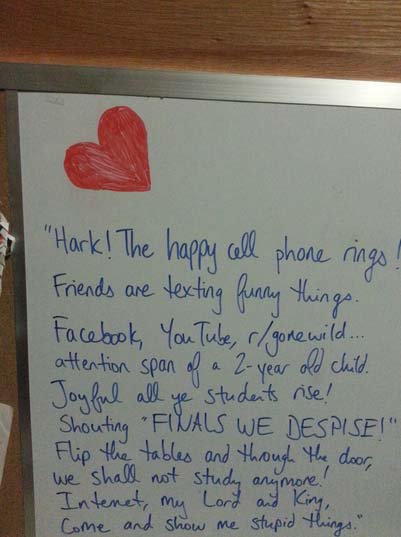 "Hark! The happy cell phone rings!
Friends are texting funny things.
Facebook, YouTube, r/gonewild...
attention span of a 2-year old child.
Joyful all ye students rise!
Shouting "FINALS WE DESPISE!"
Flip the tables and through the door,
we shall not study anymore!
Internet, my Lord and King,
Come and show me stupid things."